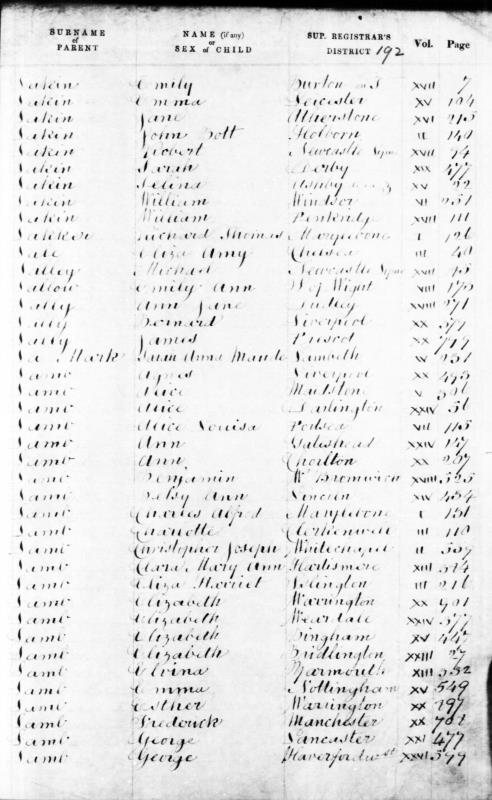 SURNAME of PARENT NAME (if any) or SEX of CHILD SUP. REGISTRAR'S DISTRICT 192 Vol. Page
Lakin Emily Burton on T XVII 7
Lakin Emma Leicester XV 194
Lakin Jane Atherstone XVI 215
Lakin John Bott Holborn II 140
Lakin Robert Newcastle Lyme XVII 74
Lakin Sarah Derby XIX 477
Lakin Selina Ashby XV 32
Lakin William Windsor VI 251
Lakin William Penkridge XVIII 111
Lakker Richard Thomas Marylebone I 126
Lale Eliza Amy Chelsea III 40
Lalley Michael Newcastle Lyme XVII 75
Lallow Emily Ann I of Wight VIII 175
Lally Ann Jane Dudley XVIII 271
Lally Bernard Liverpool XX 377
Lally James Prescot XX 749
La Mark Anna Maude Lambeth IV 251
Lamb Agnes Liverpool XX 493
Lamb Alice Maidstone V 396
Lamb Alice Darlington XXIV 56
Lamb Alice Louisa Portsea VII 115
Lamb Ann Gateshead XXIV 147
Lamb Ann Chorlton XX 257
Lamb Benjamin W Bromwich XVIII 525
Lamb Betsy Ann Lincoln XIV 434
Lamb Charles Alfred Marylebone I 151
Lamb Charlotte Clerkenwell III 110
Lamb Christopher Joseph Whitechapel II 357
Lamb Clara Mary Ann Hartismere XIII 524
Lamb Eliza Harriet Islington III 216
Lamb Elizabeth Warrington XX 901
Lamb Elizabeth Weardale XXIV 377
Lamb Elizabeth Bingham XV 447
Lamb Elizabeth Bridlington XXIII 27
Lamb Elvina Yarmouth XIII 332
Lamb Emma Nottingham XV 549
Lamb Esther Warrington XX 797
Lamb Frederick Manchester XX 702
Lamb George Lancaster XXI 477
Lamb George Haverfordwest XXVI 579